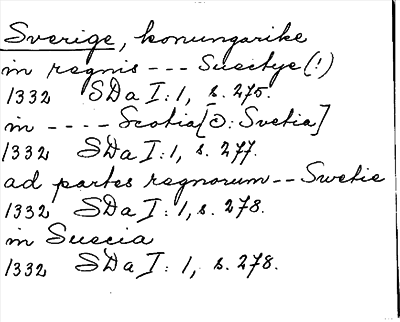 Sverige, konungarike
in regnis --- Suectye (!)
1332 SDa I: 1, s. 275.
in ---- Scotia [ɔ: Svetia]
1332 SDa I: 1, s. 277.
ad partes regnorum -- Swetie
1332 SDa I: 1, s. 278.
in Suecia
1332 SDa I: 1, s. 278.